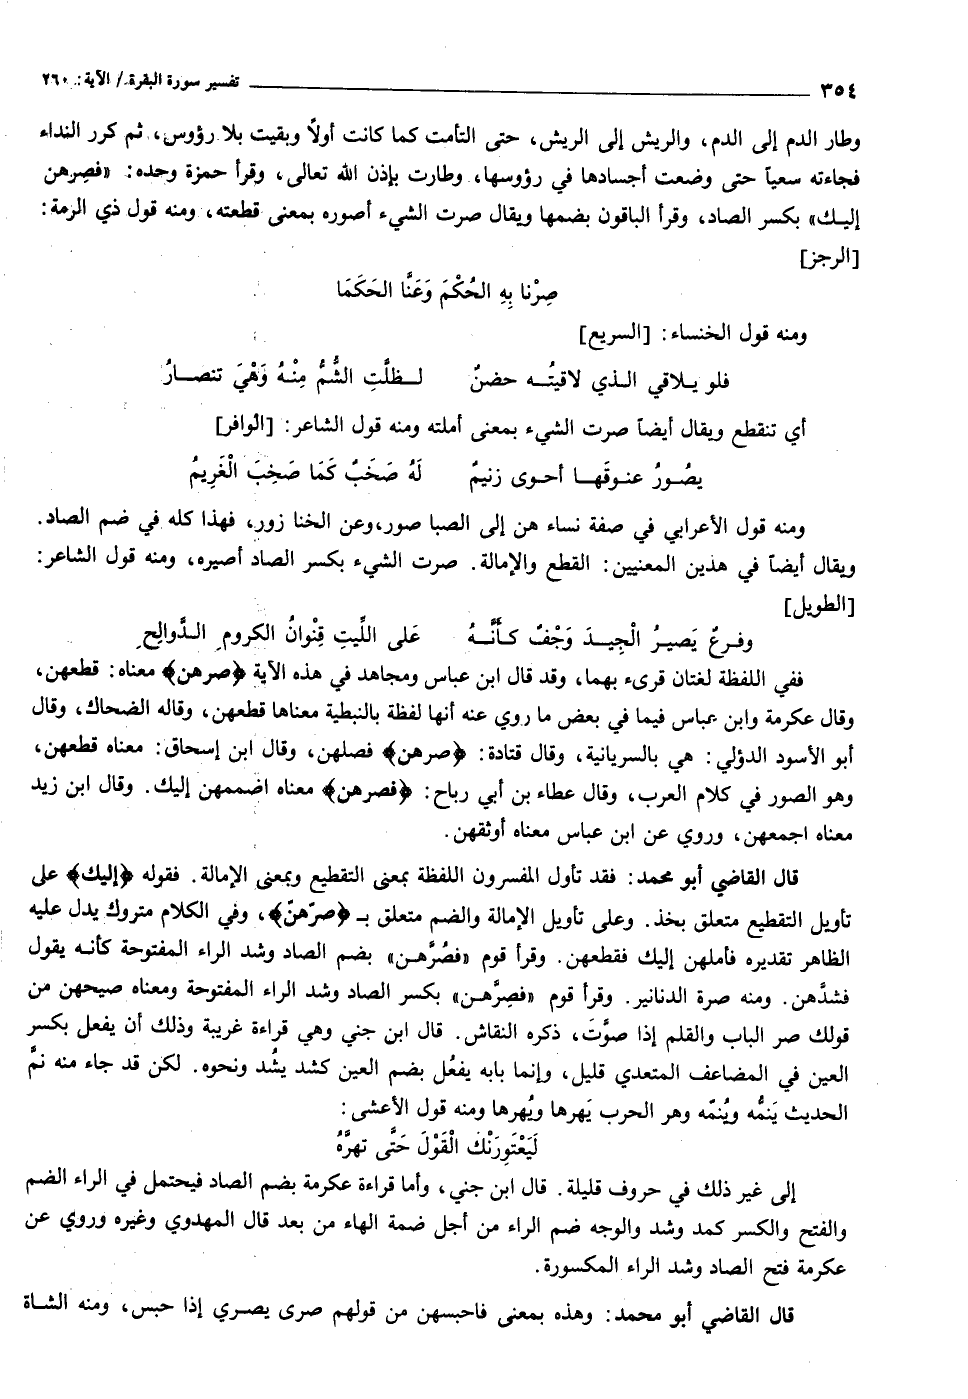 ٣٥٤ تفسير سورة البقرة / الآية: ٢٦٠
وطار الدم إلى الدم، والريش إلى الريش، حتى التأمت كما كانت أولاً وبقيت بلا رؤوس، ثم كرر النداء
فجاءته سعياً حتى وضعت أجسادها في رؤوسها، وطارت بإذن الله تعالى، وقرأ حمزة وحده: «فصِرهن
إليك» بكسر الصاد، وقرأ الباقون بضمها ويقال صرت الشيء أصوره بمعنى قطعته، ومنه قول ذي الرمة:
[الرجز]
صِرْنا بِهِ الحُكْمَ وَعَنَّا الحَكَمَا
ومنه قول الخنساء: [السريع]
فلو يـلاقي الـذي لاقيتُـه حضنٌ لـظلَّتِ الشُّمُّ مِنْـهُ وَهْيَ تنصـارُ
أي تنقطع ويقال أيضاً صرت الشيء بمعنى أملته ومنه قول الشاعر: [الوافر]
يصُـورُ عنـوقَهـا أحـوى زنيمٌ لَهُ صَخَبٌ كَمَا صَخِبَ الْغَرِيمُ
ومنه قول الأعرابي في صفة نساء هن إلى الصبا صور،وعن الخنا زور، فهذا كله في ضم الصاد.
ويقال أيضاً في هذين المعنيين: القطع والإمالة. صرت الشيء بكسر الصاد أصيره، ومنه قول الشاعر:
[الطويل]
وفـرعٌ يَصيـرُ الْجِيـدَ وَحْفٌ كـأنَّـهُ عَلى اللَّيتِ قِنْوانُ الكرومِ الـدَّوالِحِ
ففي اللفظة لغتان قرىء بهما، وقد قال ابن عباس ومجاهد في هذه الآية ﴿صرهن﴾ معناه: قطعهن،
وقال عكرمة وابن عباس فيما في بعض ما روي عنه أنها لفظة بالنبطية معناها قطعهن، وقاله الضحاك، وقال
أبو الأسود الدؤلي: هي بالسريانية، وقال قتادة: ﴿صرهن﴾ فصلهن، وقال ابن إسحاق: معناه قطعهن،
وهو الصور في كلام العرب، وقال عطاء بن أبي رباح: ﴿فصرهن﴾ معناه اضممهن إليك. وقال ابن زيد
معناه اجمعهن، وروي عن ابن عباس معناه أوثقهن.
قال القاضي أبو محمد: فقد تأول المفسرون اللفظة بمعنى التقطيع وبمعنى الإمالة. فقوله ﴿إليك﴾ على
تأويل التقطيع متعلق بخذ. وعلى تأويل الإمالة والضم متعلق بـ ﴿صرّهنّ﴾، وفي الكلام متروك يدل عليه
الظاهر تقديره فأملهن إليك فقطعهن. وقرأ قوم «فصُرَّهـن» بضم الصاد وشد الراء المفتوحة كأنـه يقول
فشدَّهن. ومنه صرة الدنانير. وقرأ قوم «فصِرَّهـن» بكسر الصاد وشد الراء المفتوحة ومعناه صيحهن من
قولك صر الباب والقلم إذا صوَّتَ، ذكره النقاش. قال ابن جني وهي قراءة غريبة وذلك أن يفعل بكسر
العين في المضاعف المتعدي قليل، وإنما بابه يفعُل بضم العين كشد يشُد ونحوه. لكن قد جاء منه نمَّ
الحديث يَنمُّه ويُنمّه وهر الحرب يَهرها ويُهرها ومنه قول الأعشى:
لَيَعْتَوِرَنْكَ الْقَوْلَ حَتَّى تهرَّهُ
إلى غير ذلك في حروف قليلة. قال ابن جني، وأما قراءة عكرمة بضم الصاد فيحتمل في الراء الضم
والفتح والكسر كمد وشد والوجه ضم الراء من أجل ضمة الهاء من بعد قال المهدوي وغيره وروي عن
عكرمة فتح الصاد وشد الراء المكسورة.
قال القاضي أبو محمد: وهذه بمعنى فاحبسهن من قولهم صرى يصـري إذا حبس، ومنه الشـاة